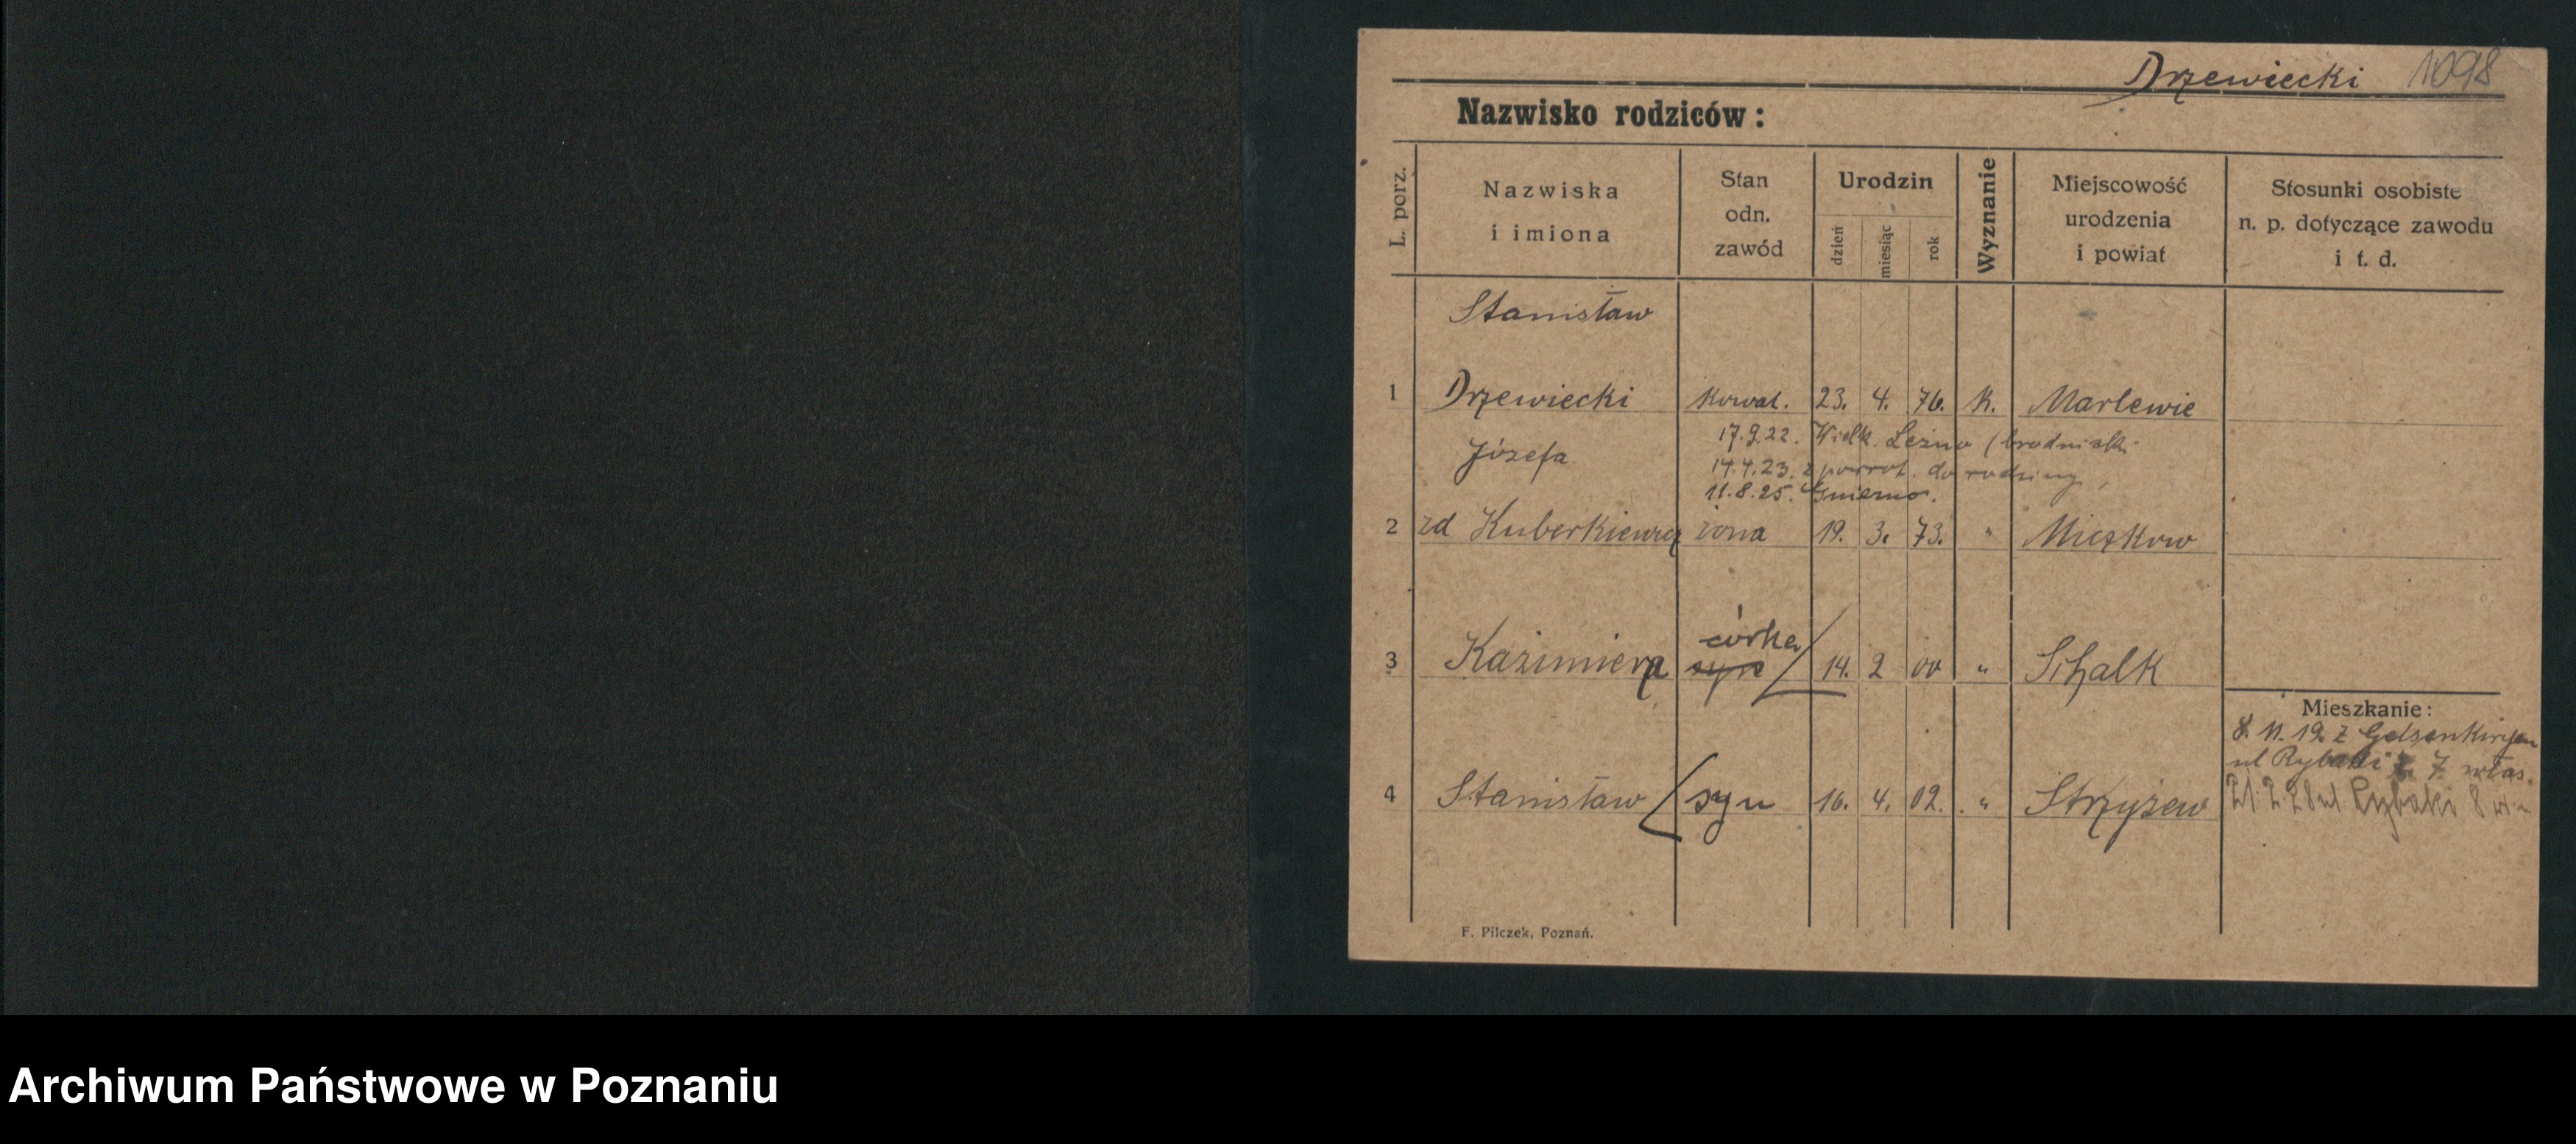 Drzewiecki 1098
Nazwisko rodziców:
L. porz.
Nazwiska
i imiona
Stan
odn.
zawód
Urodzin
dzień
miesiąc
rok
Wyznanie
Miejscowość
urodzenia
i powiat
Stosunki osobiste
n. p. dotyczące zawodu
i t. d.
Stanisław
1 Drzewiecki kowal. 23. 4. 76. K. Marlewie
17.9.22. Wielk. Leźno (brodnick
Józefa
14.4.23. z powrot. do rodziny,
11.8.25. Gniezno.
2 zd Kuberkiewicz żona 19. 3. 73. " Mieszkow
córka
3 Kazimiera syn 14. 2 00 " Schalk
Mieszkanie:
8. 11. 19. z Gelsenkirchen
ul Rybaki 7 włas.
4 Stanisław syn 16. 4. 02. " Strzyżew
21.2.28 ul Rybaki 8
F. Pilczek, Poznań.
Archiwum Państwowe w Poznaniu